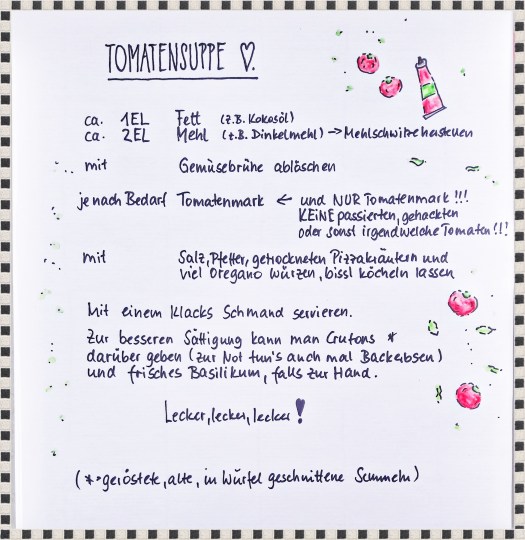 TOMATENSUPPE ♡.
ca. 1EL Fett (z.B. Kokosöl)
ca. 2EL Mehl (z.B. Dinkelmehl) → Mehlschwitze herstellen
mit Gemüsebrühe ablöschen
je nach Bedarf Tomatenmark ← und NUR Tomatenmark!!!
KEINE passierten, gehackten
oder sonst irgendwelche Tomaten!!!
mit Salz, Pfeffer, getrockneten Pizzakräutern und
viel Oregano würzen, bissl köcheln lassen
Mit einem Klacks Schmand servieren.
Zur besseren Sättigung kann man Crutons *
darüber geben (zur Not tun's auch mal Backerbsen)
und frisches Basilikum, falls zur Hand.
Lecker, lecker, lecker!
(*=geröstete, alte, in Würfel geschnittene Semmeln)